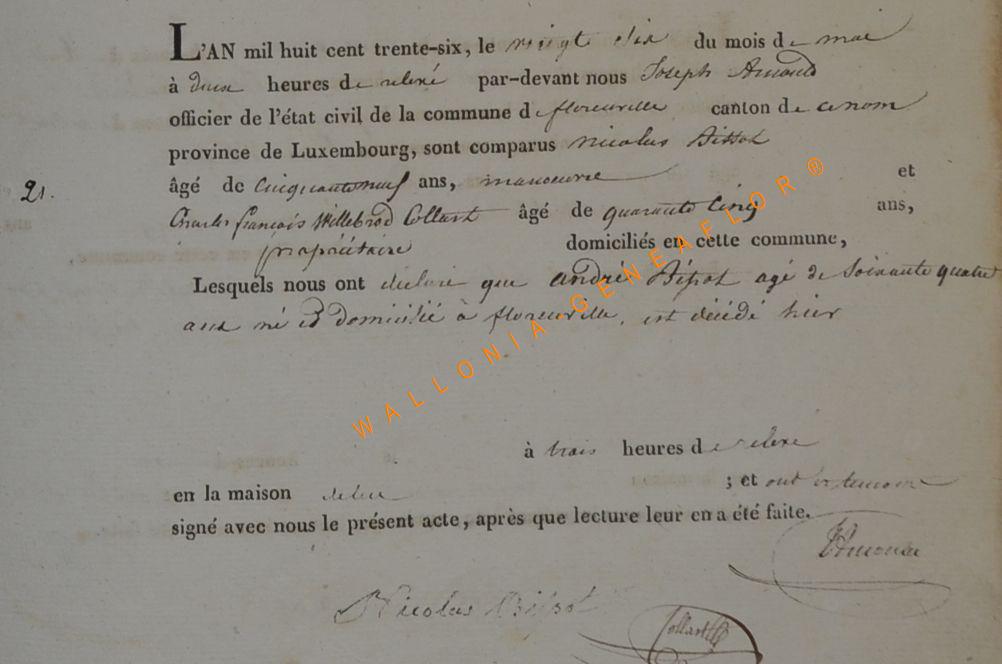 L'AN mil huit cent trente-six, le vingt six du mois de mai
à deux heures de relevé par-devant nous Joseph
officier de l'état civil de la commune de florenville canton de
province de Luxembourg, sont comparus nicolas Bissot
21.
âgé de Cinquanteneuf ans, manoeuvre et
Charles françois Willebrod Collart âgé de quarante Cinq ans,
propriétaire domiciliés en cette commune,
Lesquels nous ont déclaré que andré Bissot agé de Soixante quatre
ans né et domicilié à florenville, est décédé hier
WALLONIA GENEAFLOR ®
à trois heures de relevé
en la maison ; et ont les témoins
signé avec nous le présent acte, après que lecture leur en a été faite.
Nicolas Bissot
Collart